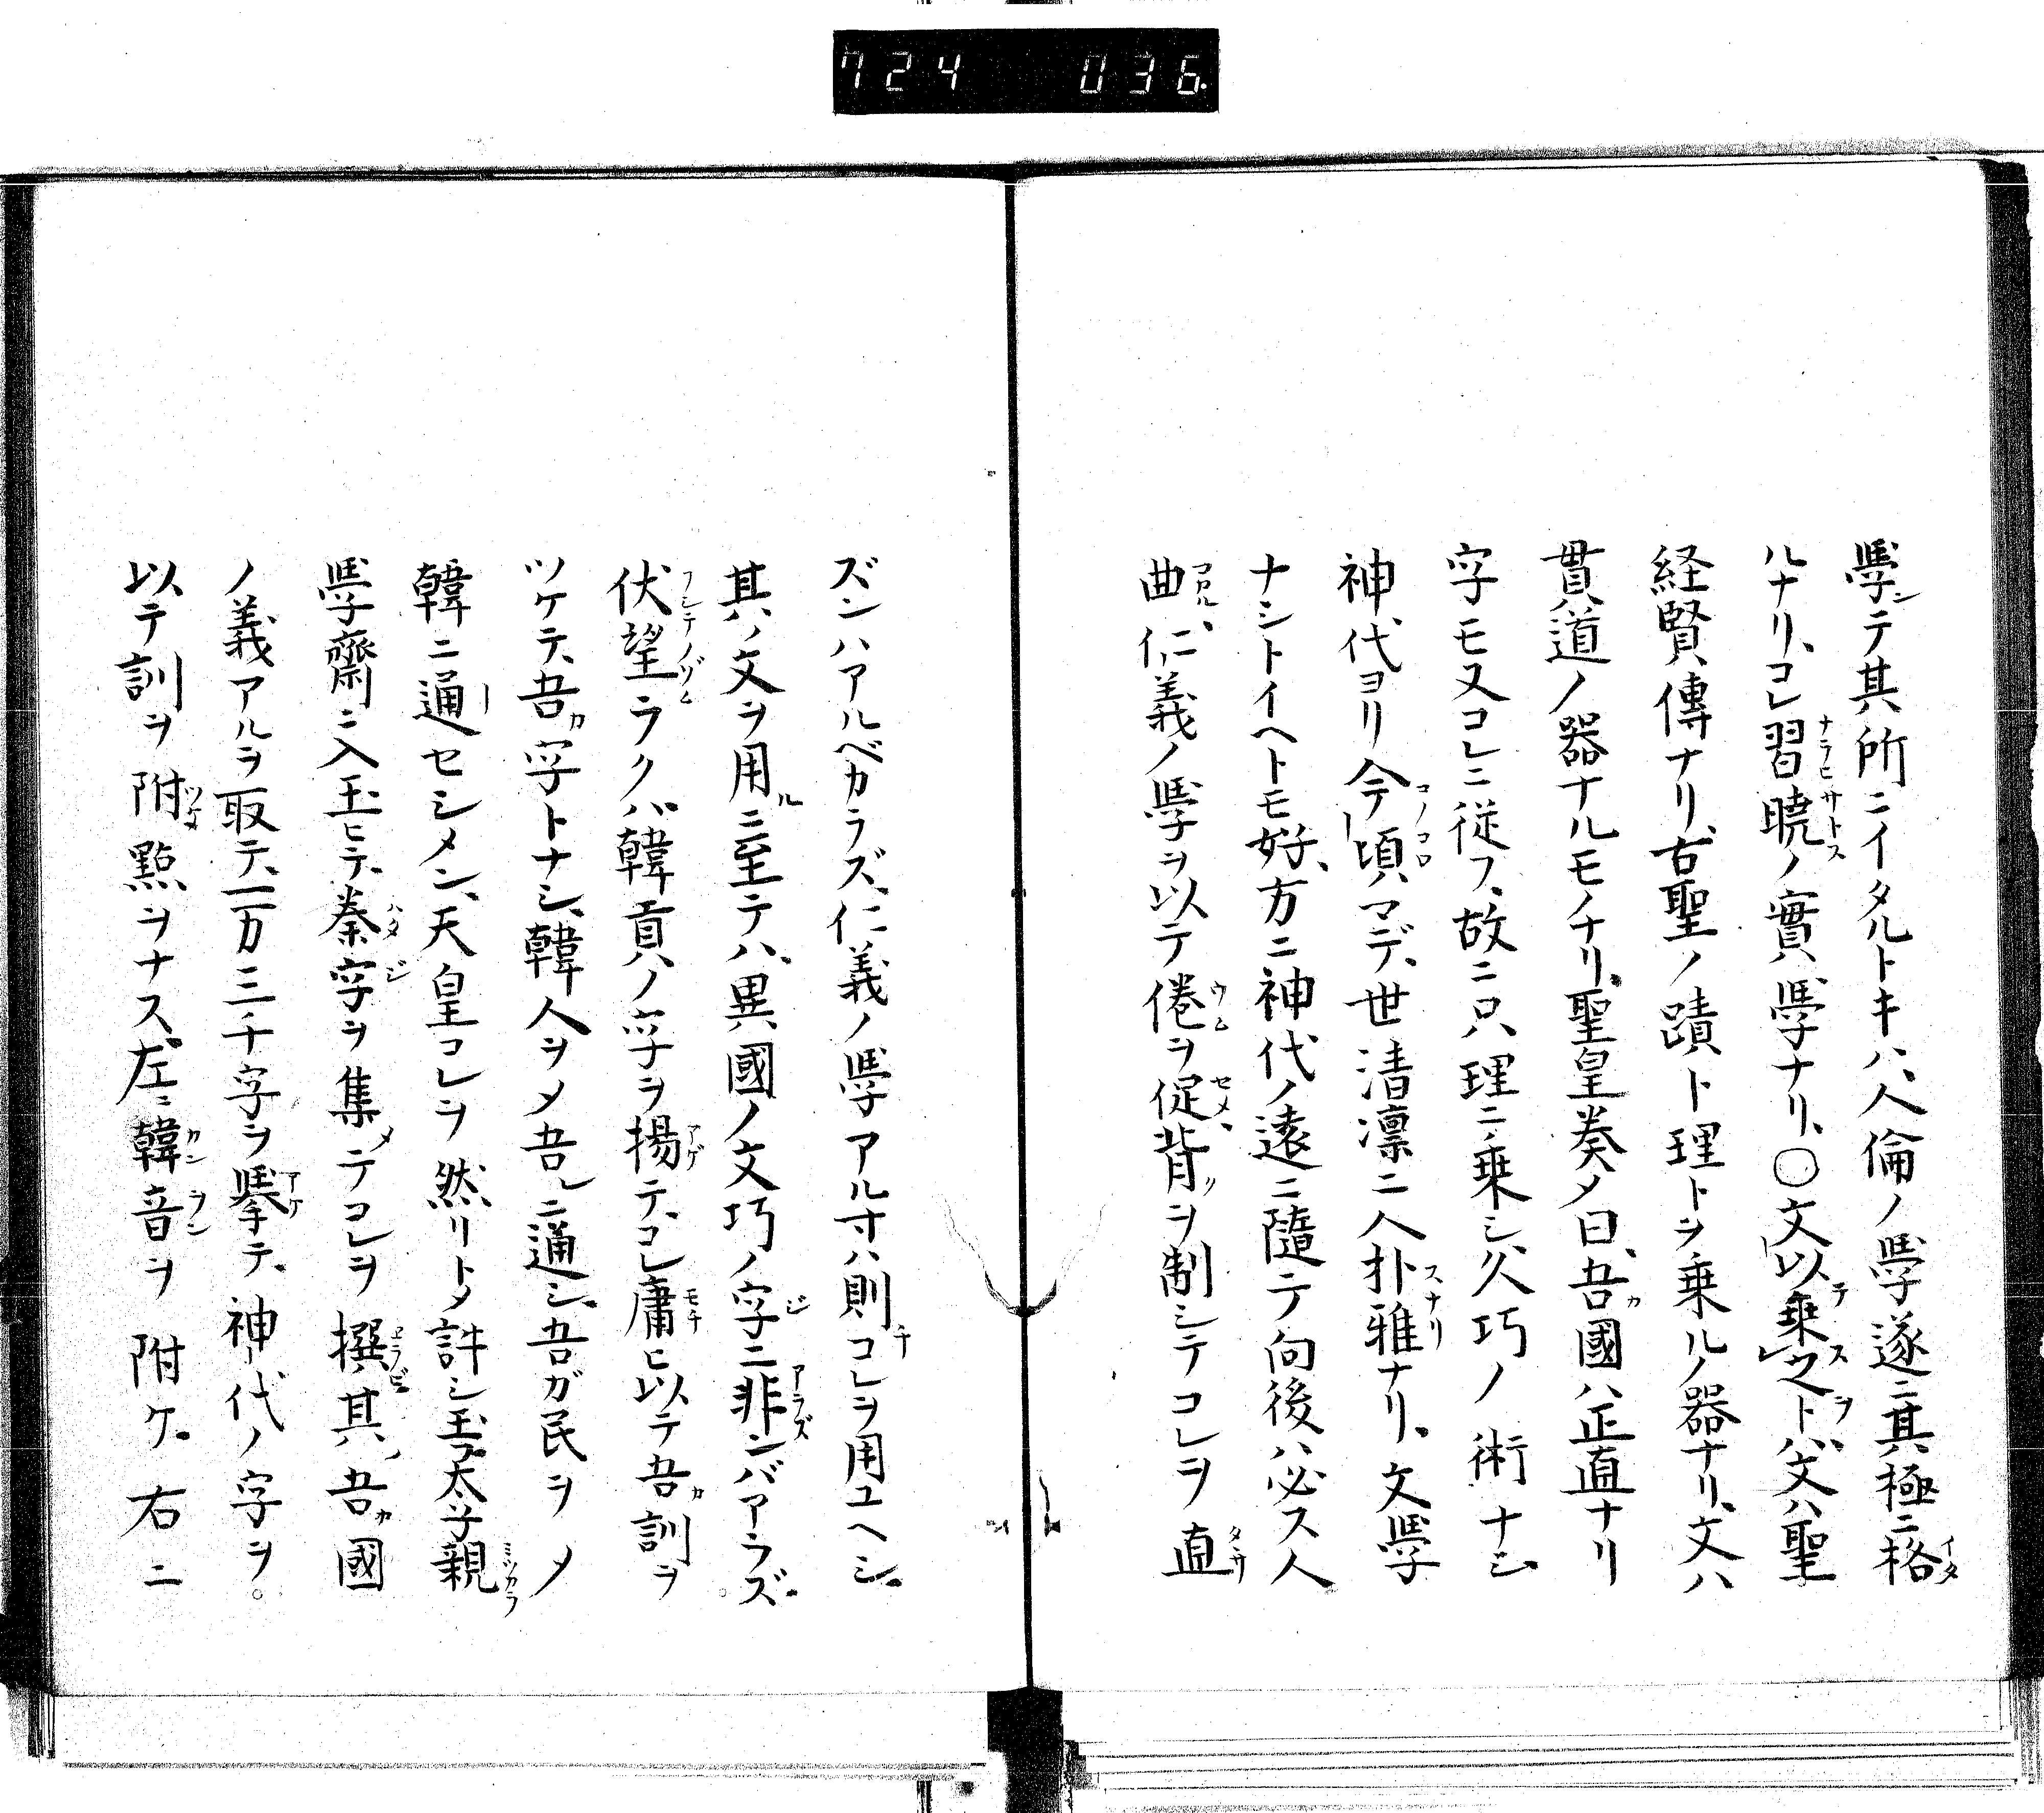 724 036.
學ンテ其所ニイタルトキハ、人倫ノ學遂ニ其極ニ格
ルナリ、コレ習曉ノ實學ナリ、○文以乗之トハ、文ハ聖
経賢傳ナリ、古聖ノ蹟ト理トヲ乗ルノ器ナリ、文ハ
貫道ノ器ナルモノナリ、聖皇奏メ曰、吾國ハ正直ナリ
字モ又コレニ従フ、故ニ只理ニノ乗シ、久巧ノ術ナシ
神代ヨリ今頃マデ、世清凛ニ人朴雅ナリ、文學
ナシトイヘトモ好、方ニ神代ノ遠ニ隨テ向後ハ必ス人
曲、仁義ノ學ヲ以テ倦ヲ促、背ヲ制シテコレヲ直
ズンハアルベカラズ、仁義ノ學アル寸ハ則コレヲ用ユヘシ。
其ノ文ヲ用ニ至テハ、異國ノ文巧ノ字ニ非ンバアラズ。
伏望ラクハ韓貢ノ字ヲ揚テ、コレ庸ヒ以テ吾訓ヲ
ツケテ、吾字トナシ、韓人ヲメ吾レニ通シ、吾ガ民ヲメ
韓ニ通セシメン、天皇コレヲ然リトメ許シ玉フ、太子親
學齋ニ入玉ヒテ、秦字ヲ集メテコレヲ撰、其ノ吾國
ノ義アルヲ取テ、一万三千字ヲ擧テ、神代ノ字ヲ。
以テ訓ヲ附點ヲナス、左ニ韓音ヲ附ケ。右ニ